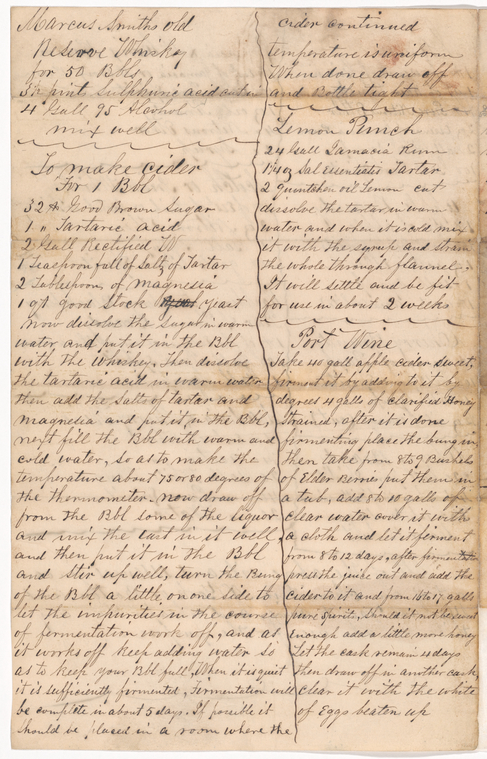 Marcus Smiths old
Reserve Whisky
for 50 Bbls
3½ pints Sulphuric acid cut in
4 Gall 95 Alcohol
mix well
To make cider
For 1 Bbl
32 # Good Brown Sugar
1 " Tartaric acid
2 Gall Rectified W.
1 Teaspoonfull of Salts of Tartar
2 Tablespoon of magnesia
1 qt good Stock yeast
now dissolve the sugar in warm
water and put it in the Bbl
with the whiskey, Then dissolve
the tartaric acid in warm water
then add the salts of tartar and
magnesia and put it in the Bbl,
next fill the Bbl with warm and
cold water, so as to make the
temperature about 75 or 80 degrees of
the thermometer. now draw off
from the Bbl some of the liquor
and mix the east in it well
and then put it in the Bbl
and stir up well, turn the Bung
of the Bbl a little on one side to
let the impurities in the course
of fermentation work off, and as
it works off keep adding water so
as to keep your Bbl full, When it is quiet
it is sufficiently firmented, Fermentation will
be complete in about 5 days. If possible it
should be placed in a room where the
cider continued
temperature is uniform
When done draw off
and Bottle tight
Lemon Punch
24 Gall Jamacia Rum
oz Sal essentiatis Tartar
2 oil Lemon cut
dissolve the tartar in warm
water and when it is cold mix
it with the syrup and strain
the whole through flannel.
It will settle and be fit
for use in about 2 weeks
Port Wine
Take 40 gall apple cider sweet,
firment it by adding to it by
degrees 4 galls of clarified Honey
strained, after it is done
firmenting place the bung in
then take from 8 to 9 Bushels
of Elder Berries put them in
a tub, add 8 to 10 galls of
clear water cover it with
a cloth and let it ferment
from 8 to 12 days, after firmentation
press the juice out and add the
cider to it and from 16 to 17 galls
pure spirit, should it not be sweet
enough add a little more honey
Let the cask remain 4 days
then draw off in another cask,
clear it with the white
of Eggs beaten up